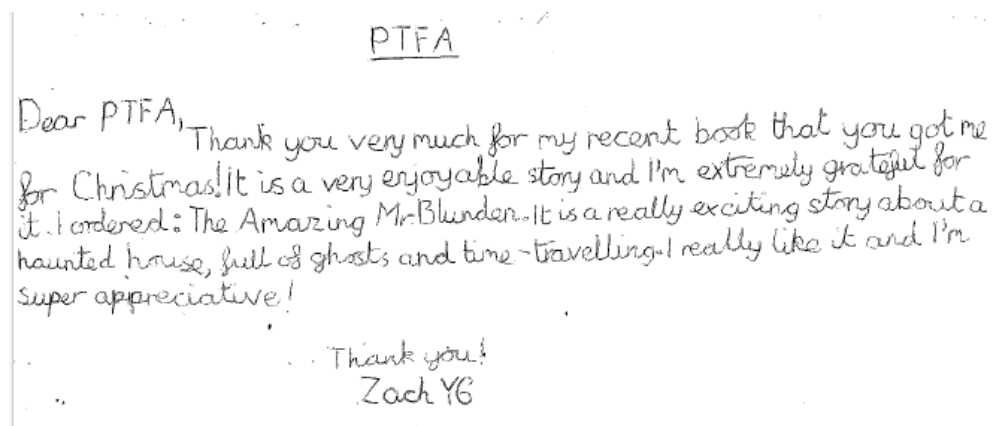 PTFA
Dear PTFA,
Thank you very much for my recent book that you got me
for Christmas! It is a very enjoyable story and I'm extremely grateful for
it. I ordered: The Amazing Mr. Blunden. It is a really exciting story about a
haunted house, full of ghosts and time-travelling. I really like it and I'm
super appreciative!
Thank you!
Zach Y6